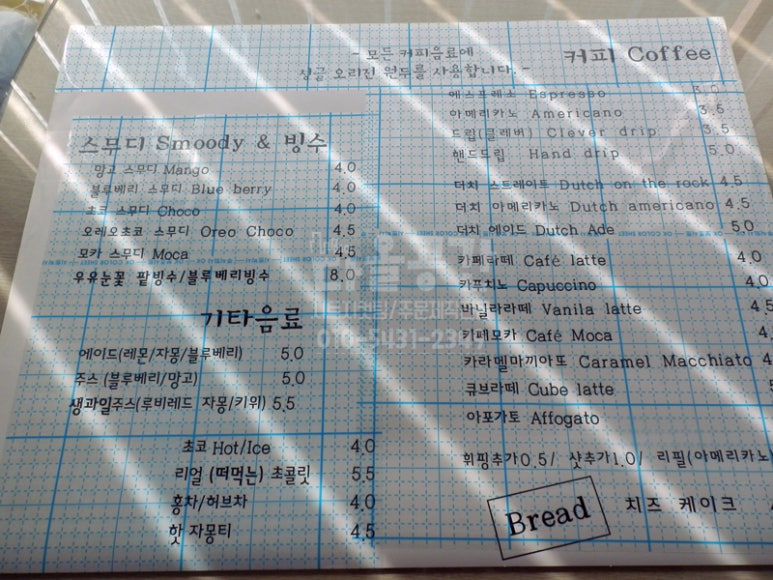 - 모든 커피음료에
싱글 오리진 원두를 사용합니다. -
커피 Coffee
에스프레소 Espresso 3.0
아메리카노 Americano 3.5
드립(클레버) Clever drip 3.5
핸드드립 Hand drip 5.0
더치 스트레이트 Dutch on the rock 4.5
더치 아메리카노 Dutch americano 4.5
더치 에이드 Dutch Ade 5.0
카페라떼 Café latte 4.0
카푸치노 Capuccino 4.0
바닐라라떼 Vanila latte
카페모카 Café Moca
카라멜마끼아또 Caramel Macchiato
큐브라떼 Cube latte
아포가토 Affogato
휘핑추가0.5/ 샷추가1.0/ 리필(아메리카노
Bread 치즈 케이크
스무디 Smoody & 빙수
망고 스무디 Mango 4.0
블루베리 스무디 Blue berry 4.0
초코 스무디 Choco 4.0
오레오초코 스무디 Oreo Choco 4.5
모카 스무디 Moca 4.5
우유눈꽃 팥빙수/블루베리빙수 8.0
기타음료
에이드(레몬/자몽/블루베리) 5.0
주스 (블루베리/망고) 5.0
생과일주스(루비레드 자몽/키위) 5.5
초코 Hot/Ice 4.0
리얼 (떠먹는) 초콜릿 5.5
홍차/허브차 4.0
핫 자몽티 4.5